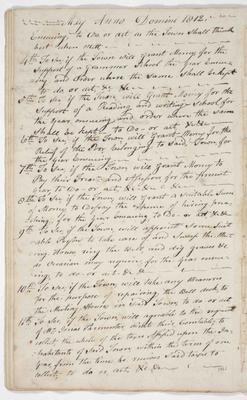 May Anno Domine 1812.
Ensuing to do or act as the Town Shall think
best when met
4th To See if the Town will Grant Money for the
Support of a Grammar School the Year Ensu-
ing and order where the Same Shall be kept
to do or act &c &c
5th To See if the Town will Grant Money for the
Support of a Reading and writing School for
the Year ensuing and order where the Same
Shall be kept To do or act &c &c
6th To See if the Town will Grant Money for the
Relief of the Poor belonging to Said Town for
the Year Ensuing
7th To See if the Town will Grant Money to
Pay their and Assessors for the
Year to do or act &c &c
8th To See if the Town will Grant a Suitable Sum
of Money to Defray the Expence of hiring prea-
ching for the Year Ensuing to do or act &c &c
9th To See if the Town will appoint Some Suit-
able Person to take care of and Sweep the Mee-
ting House ring the Bell and dig graves &c
as occasion may require for the Year ensu-
ing to do or act &c &c
10th To See if the Town will take any Measures
for the purpose of repairing the Bell deck to
the Meeting House in Said Town to do or act
11th To See if the Town will agreable to the request
of Mr Jonas Parmenter abate their Constable to
collect the whole of the taxes Assessed upon the In-
habitants of Said Town within the term of one
Year from the time he receives Said taxes to
collect to do or act &c &c